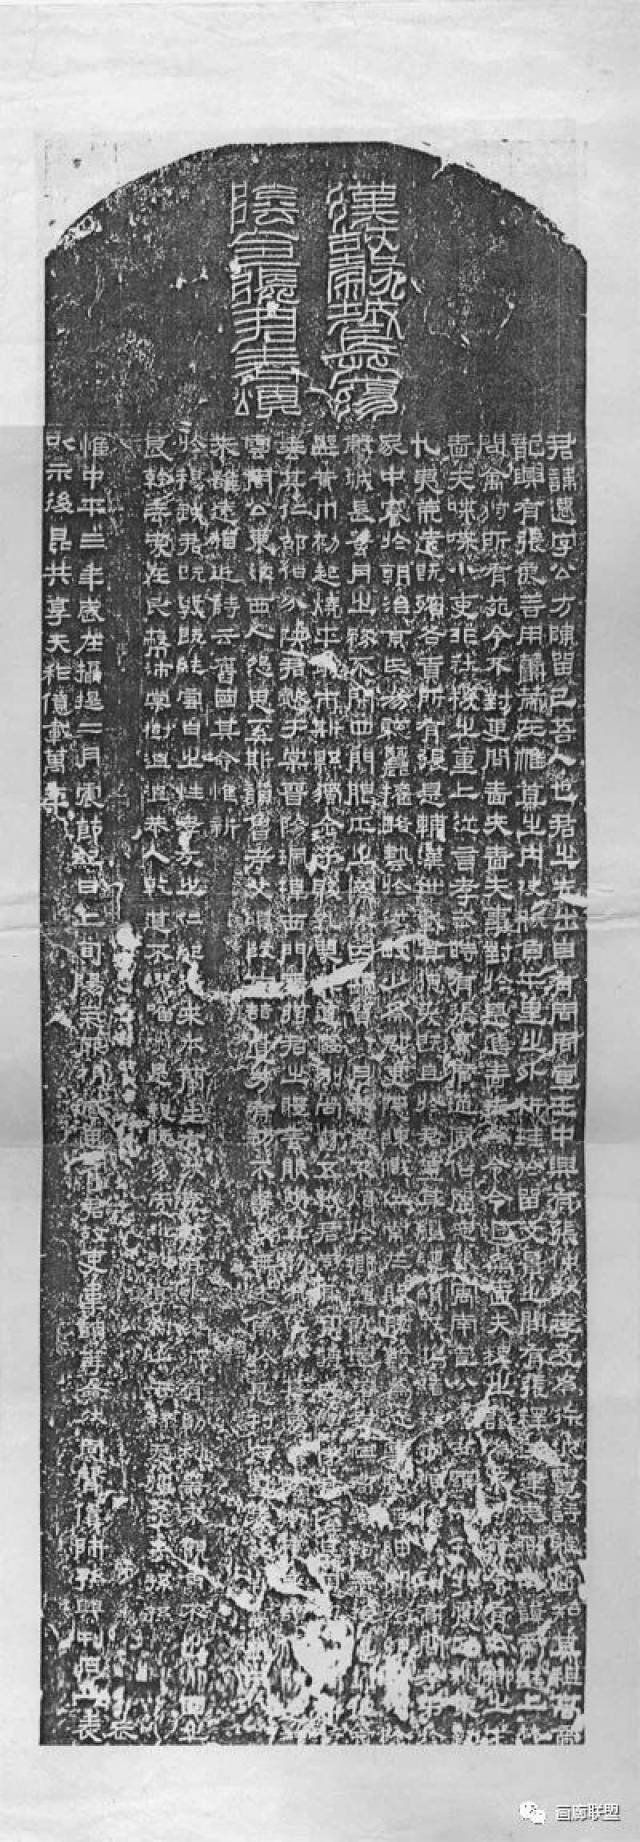 漢故穀城長蕩
陰令張君表頌
君諱遷字公方陳留己吾人也君之先出自有周周宣王中興有張仲以孝友為行披覽詩雅煥知其祖高帝
龍興有張良善用籌策在帷幕之內決勝負千里之外析珪於留文景之間有張釋之建忠弼之謨帝遊上林
問禽狩所有苑令不對更問嗇夫嗇夫事對於是進嗇夫為令令退為嗇夫釋之議為不可苑令有公卿之才
嗇夫喋喋小吏非社稷之重上從言孝武時有張騫廣通風俗開定畿寓南苞八蠻西羈六戎北震五狄東勤
九夷荒遠既殯各貢所有張是輔漢世載其德爰既且於君蓋其繵縺纘戎鴻緒牧守相係不殞高問孝弟於
家中謇於朝治京氏易聰麗權略藝於從畋少為郡吏隱練職位常在股肱數為從事聲無細聞徵拜郎中除
穀城長蠶月之務不閉四門臘正之祭休囚歸賀八月算民不煩於鄉隨就虛落存恤高年路無拾遺犁種宿
野黃巾初起燒平城市斯縣獨全子賤孔蔑其道區別尚書五教君崇其寬詩云愷悌君隆其恩東里潤色君
垂其仁邵伯分陝君懿于棠晉陽珮瑋西門帶弦君之體素能雙其勛流化八基遷蕩陰令吏民頡頏隨送如
雲周公東征西人怨思奚斯讚魯考父頌殷前喆遺芳有功不書後無述焉於是刊石豎表銘勒萬載三代以
來雖遠猶近詩云舊國其命惟新
於穆我君既敦既純雪白之性孝友之仁紀行來本蘭生有芬克岐有兆綏御有勛利器不覿魚不出淵國之
良幹垂愛在民蔽沛棠樹溫溫恭人乾道不繆唯淑是親既多受祉永享南山干祿無疆子子孫孫
惟中平三年歲在攝提二月震節紀日上旬陽氣厥析感思舊君故吏韋萌等僉然同聲賃師孫興刊石立表
以示後昆共享天祚億載萬年
画廊联盟